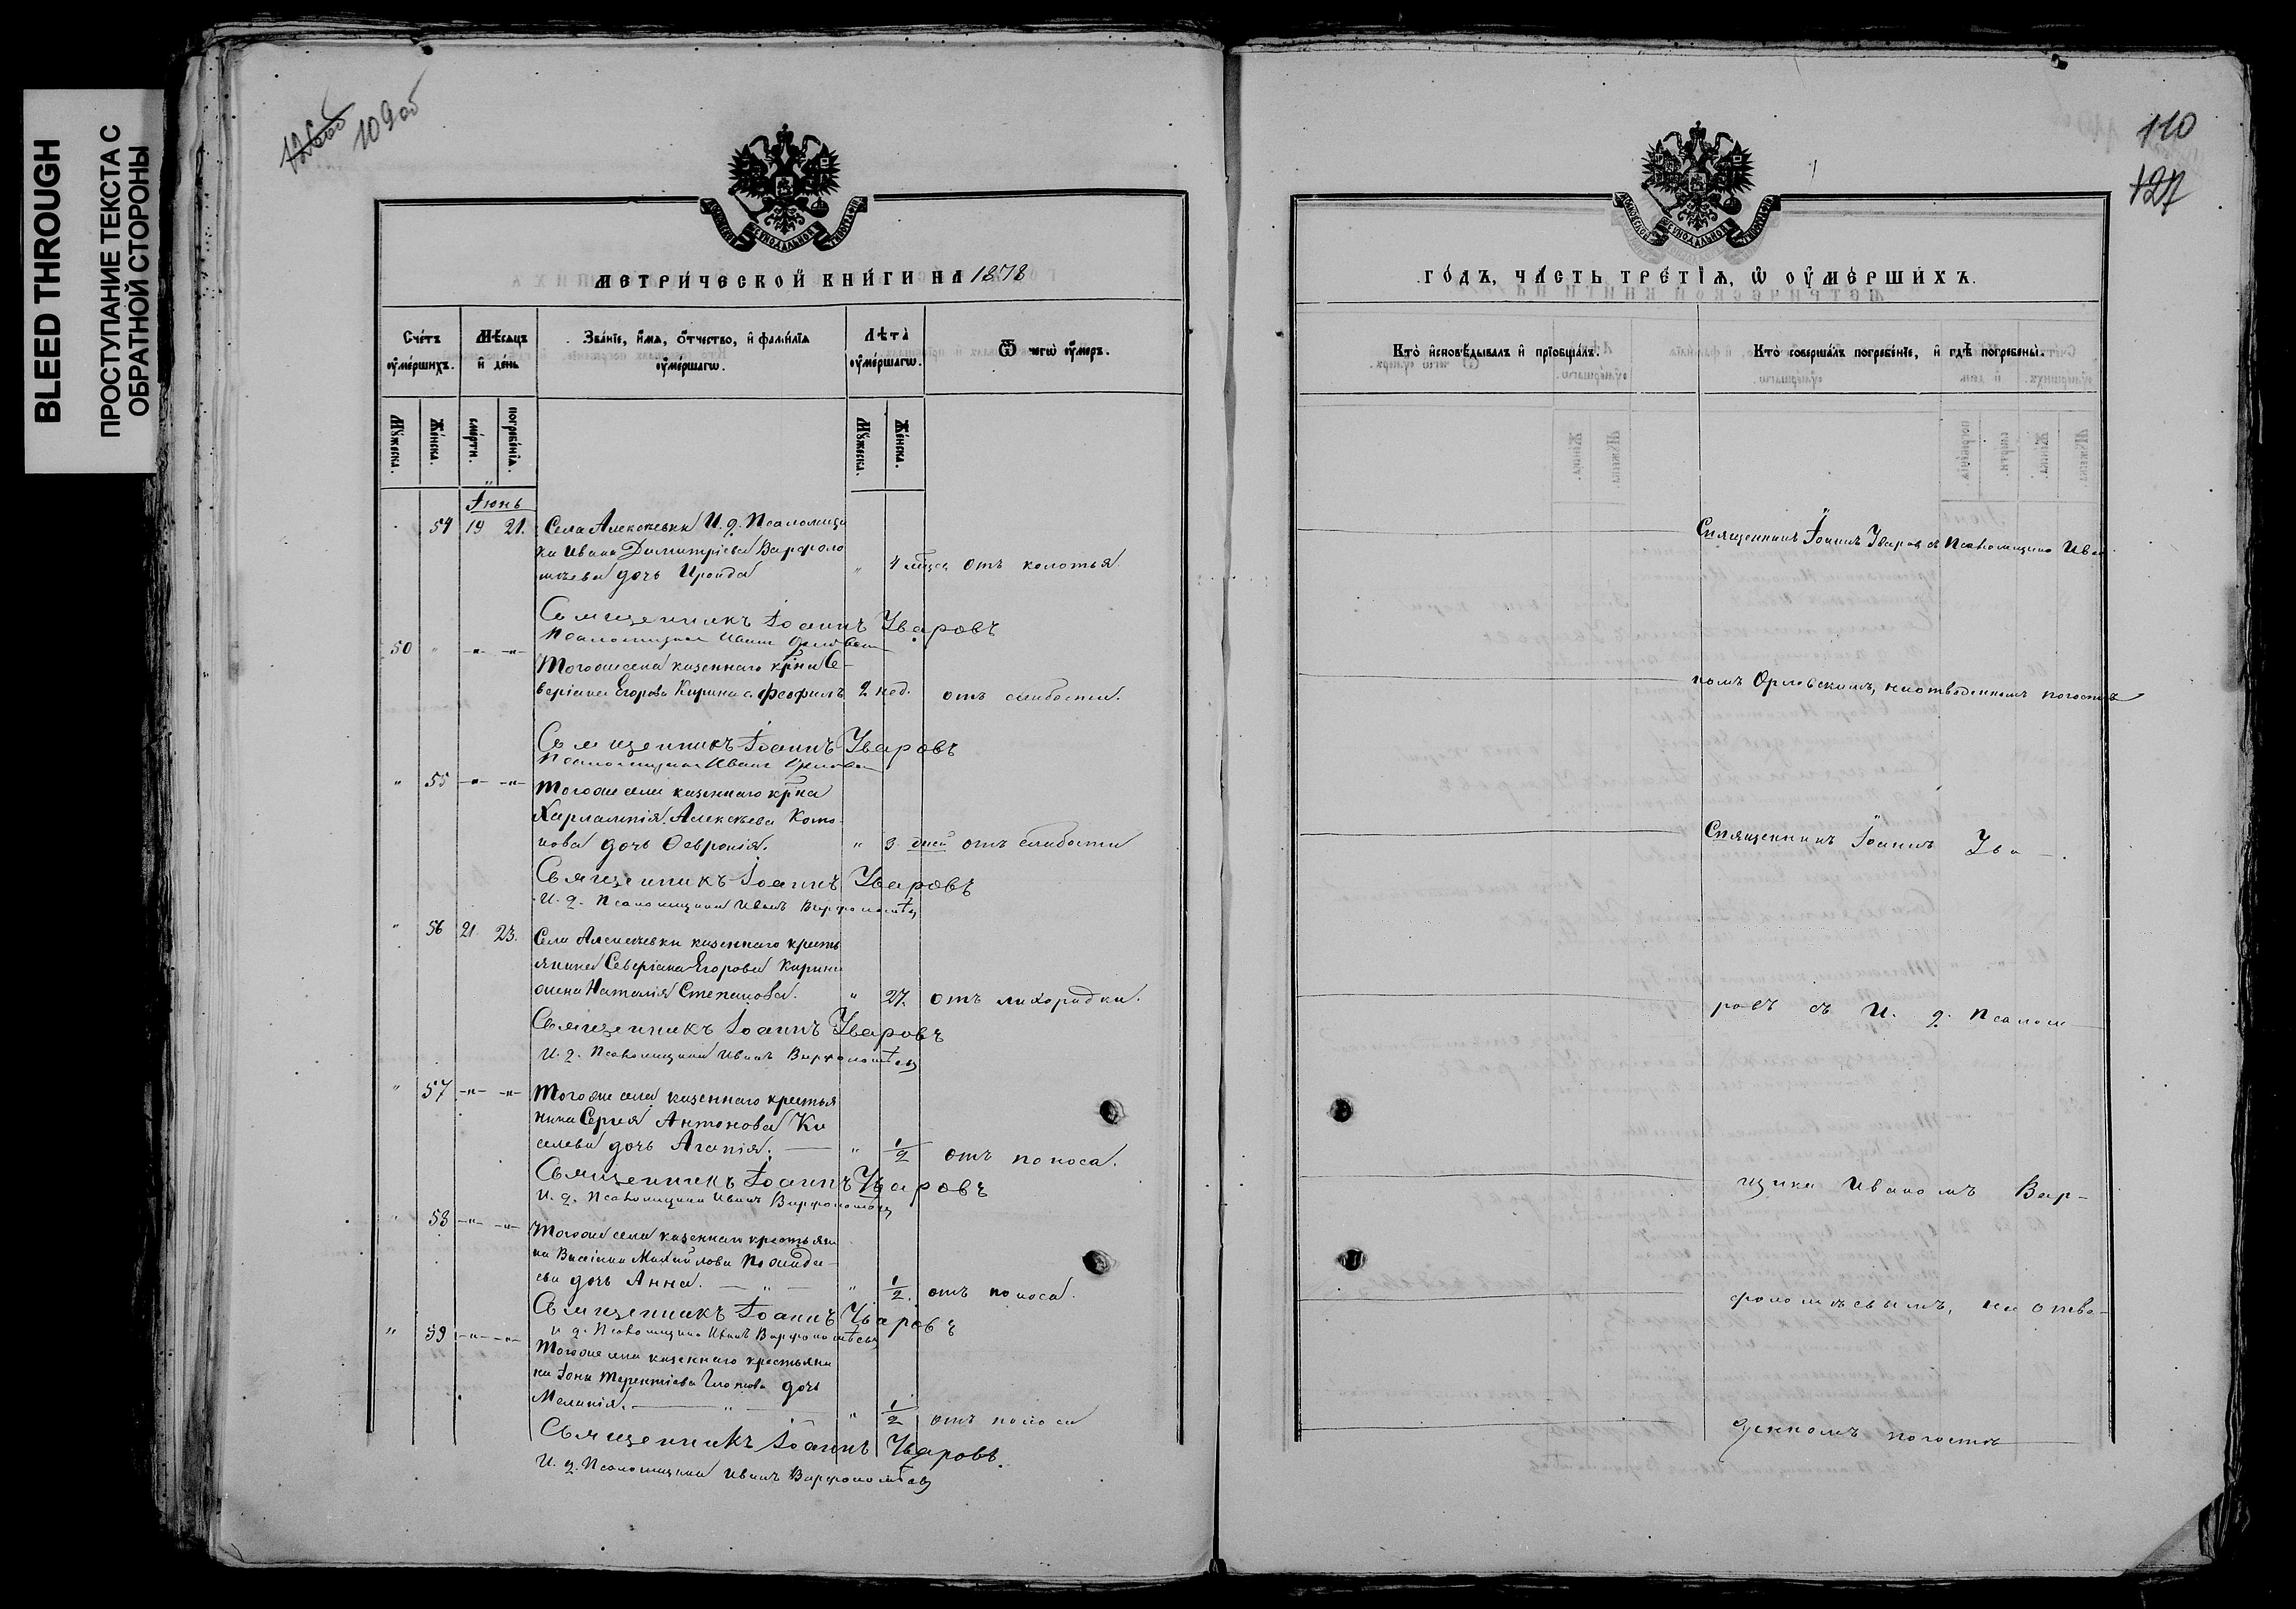 BLEED THROUGH
ПРОСТУПАНИЕ ТЕКСТА С
ОБРАТНОЙ СТОРОНЫ
126об
109об
МЕТРИ́ЧЕСКОЙ КНИ́ГИ НА 1878
Сче́тъ ᲂу҆ме́ршихъ.
Мѣ́сяцъ и҆ де́нь
Зва́нїе, и҆́мѧ, ѻ҆́тчество, и҆ фами́лїѧ ᲂу҆ме́ршагѡ.
Лѣ́та ᲂу҆ме́ршагѡ.
Ѿ чегѡ̀ ᲂу҆́меръ.
Мꙋ́жеска.
Же́нска.
сме́рти.
погребе́нїѧ.
Мꙋ́жеска.
Же́нска.
Іюнь
54 19 21. Села Алексѣевки И. д. Псаломщи
ка Ивана Димитріева Варфоло
мѣева дочь Ираида " 4 мѣсц. отъ колотья.
Священникъ Іоаннъ Уваровъ
Псаломщикъ Иванъ Орловскій
50 " -"- -"-
Тогоже села казеннаго крѣна Се-
веріана Егорова Кирина с. Феофилъ 2 нед. отъ слабости.
Священникъ Іоаннъ Уваровъ
Псаломщикъ Иванъ Орловскій
" 55 -"- -"- Тогоже села казеннаго крѣна
Харлампія Алексѣева Коно-
нова дочь Ѳевронія. " 3 дней отъ слабости
Священникъ Іоаннъ Уваровъ
И. д. Псаломщика Иванъ Варфоломѣевъ
" 56 21. 23. Села Алексѣевки казеннаго кресть
янина Северіана Егорова Кирина
жена Наталія Степанова. " 27. отъ лихорадки.
Священникъ Іоаннъ Уваровъ
И. д. Псаломщика Иванъ Варфоломѣевъ
" 57 -"- -"- Тогоже села казеннаго крестья
нина Сергея Антонова Ки
селева дочь Агапія. " 1/2 отъ поноса.
Священникъ Іоаннъ Уваровъ
И. д. Псаломщика Иванъ Варфоломѣевъ
" 58 -"- -"- Тогоже села казеннаго крестьяни
на Василія Михайлова
дочь Анна. " " 1/2. отъ поноса.
Священникъ Іоаннъ Уваровъ
И. д. Псаломщика Иванъ Варфоломѣевъ
" 59 -"- -"-
Тогоже села казеннаго крестьяни
на Іона Терентіева дочь
Меланія. " " 1/2 отъ поноса
Священникъ Іоаннъ Уваровъ.
И. д. Псаломщика Иванъ Варфоломѣевъ
110
127
ГО́ДЪ, ЧА́СТЬ ТРЕ́ТЇѦ, Ѡ҆ ᲂУ҆МЕ́РШИХЪ.
Кто̀ и҆сповѣ́дывалъ и҆ прїѡбща́лъ.
Кто̀ соверша́лъ погребе́нїе, и҆ гдѣ̀ погребены̀.
Священникъ Іоаннъ Уваровъ съ Псаломщикомъ Ива
номъ Орловскимъ, на отведенномъ погостѣ
Священникъ Іоаннъ Ува-
ровъ съ И. д. Псалом
щика Иваномъ Вар-
фоломѣевымъ, на отве-
денномъ погостѣ